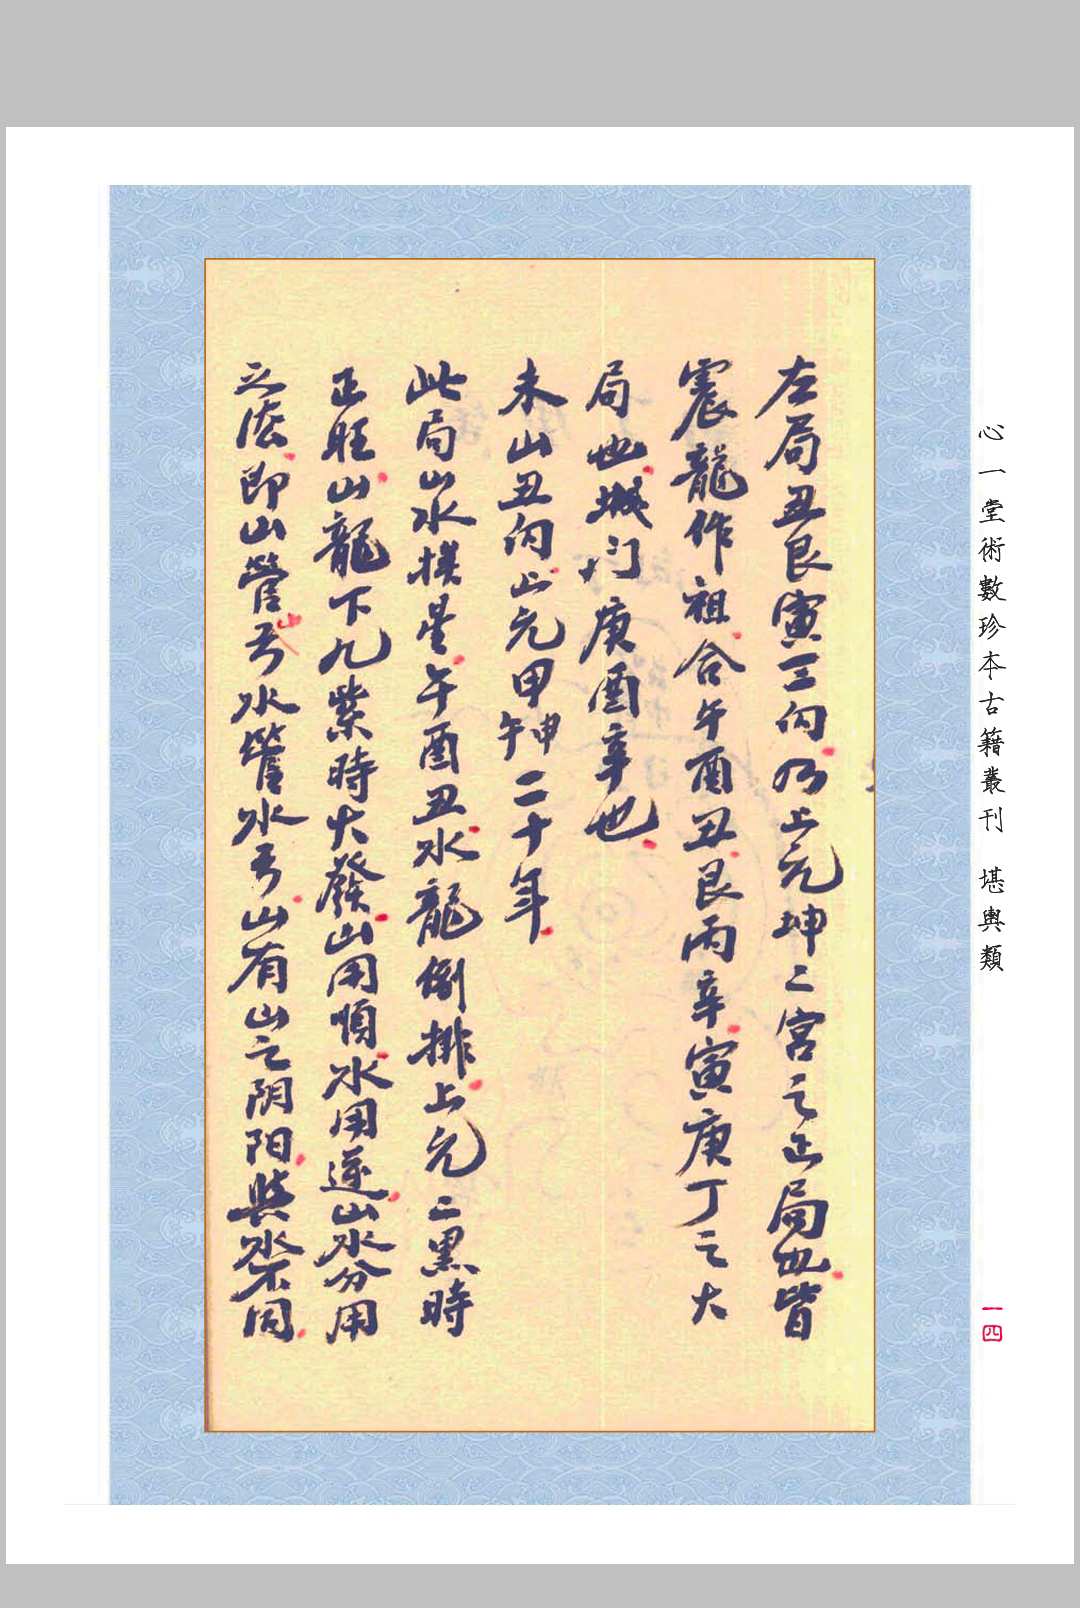 左局丑艮寅三向乃上元坤二宮之正局也皆
震龍作祖合午酉丑艮丙辛寅庚丁之大
局也城门庚酉辛也
未山丑向上元甲申甲午二十年
此局山水挨星午酉丑水龍倒排上元二黑時
正旺山龍下九紫時大發山用順水用逆山水分用
之法即山管山水管水山有山之阴阳與水不同
心一堂術數珍本古籍叢刊 堪輿類
一四